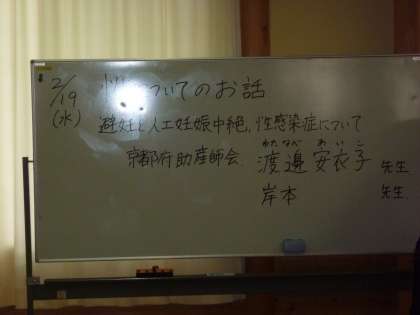 2/19
(水)
性についてのお話
避妊と人工妊娠中絶、性感染症について
京都府助産師会
わたなべ あいこ
渡邉 安衣子 先生
岸本 先生